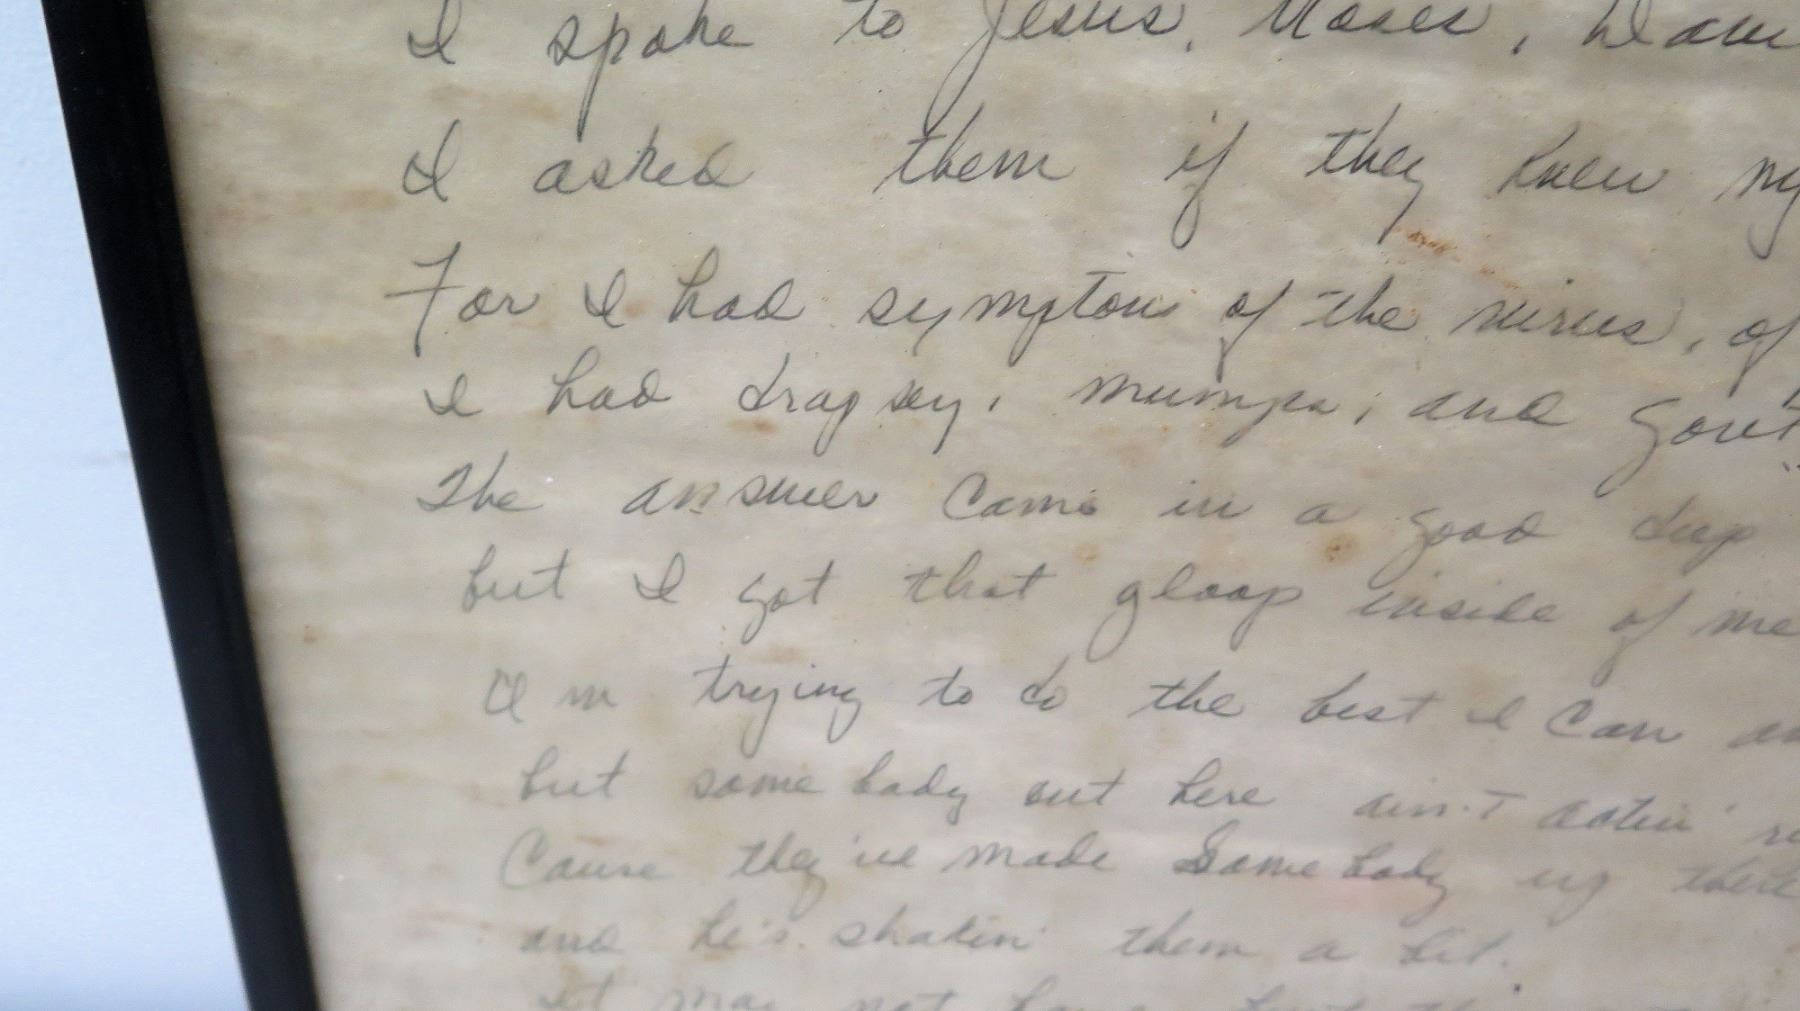 I spoke to Jesus, Moses,
I asked them if they knew my
For I had symptons of the virus, of
I had dropsy, mumps, and gout
The answer came in a good deep
but I got that gloop inside of me
I'm trying to do the best I can
but some body out here ain't actin'
Cause they've made Some body up there
and he's shakin' them a bit.
It may not